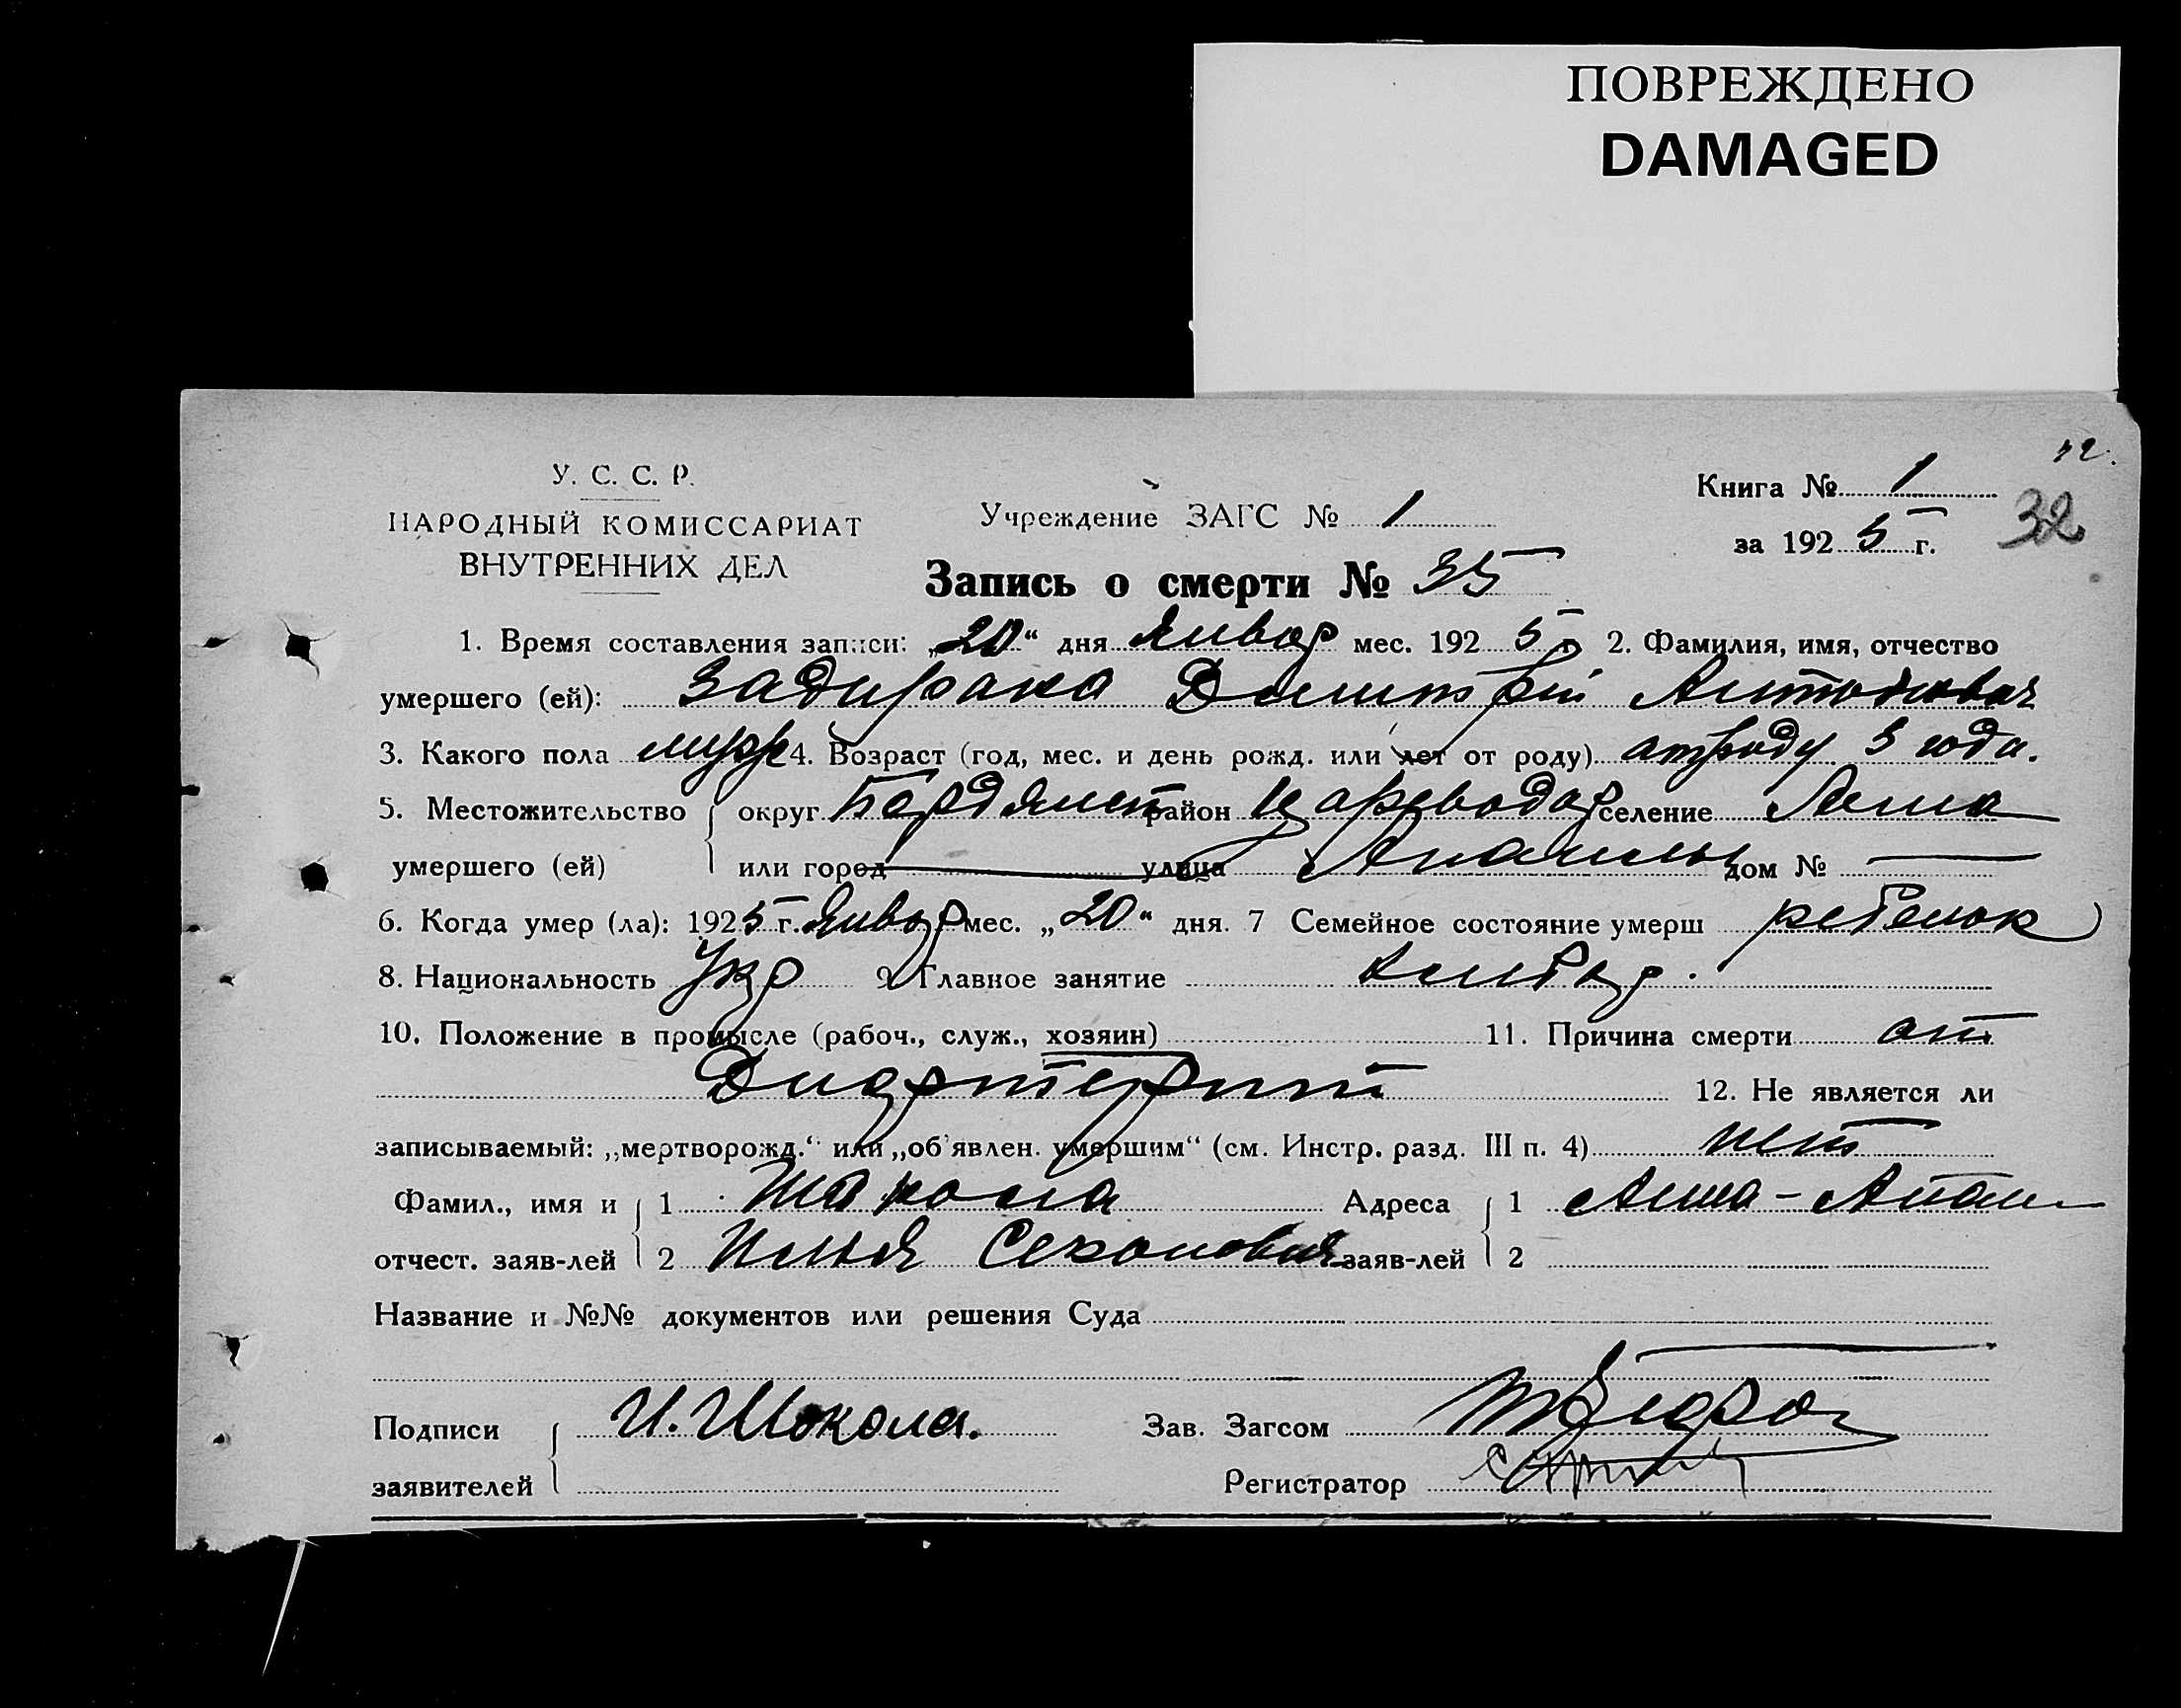 ПОВРЕЖДЕНО
DAMAGED
32.
У. С. С. Р.
НАРОДНЫЙ КОМИССАРИАТ
ВНУТРЕННИХ ДЕЛ
Учреждение ЗАГС № 1
Книга № 1
за 1925 г.
32
Запись о смерти № 35
1. Время составления записи: „20“ дня Январ мес. 1925 2. Фамилия, имя, отчество
умершего (ей): Задирака Дмитрий Антонович
3. Какого пола муж 4. Возраст (год, мес. и день рожд. или лет от роду) отроду 3 года.
5. Местожительство округ Бердянск район Цареводар селение Анна
умершего (ей) или город улица дом № —
6. Когда умер (ла): 1925 г. Январ мес. „20“ дня. 7 Семейное состояние умерш ребенок
8. Национальность Укр 9. Главное занятие
10. Положение в промысле (рабоч., служ., хозяин) 11. Причина смерти от
Дифтерит 12. Не является ли
записываемый: „мертворожд.“ или „об'явлен. умершим“ (см. Инстр. разд. III п. 4) нет
Фамил., имя и 1 Шокола Адреса 1
отчест. заяв-лей 2 Илья заяв-лей 2
Название и №№ документов или решения Суда
Подписи И. Шокола. Зав. Загсом
заявителей Регистратор